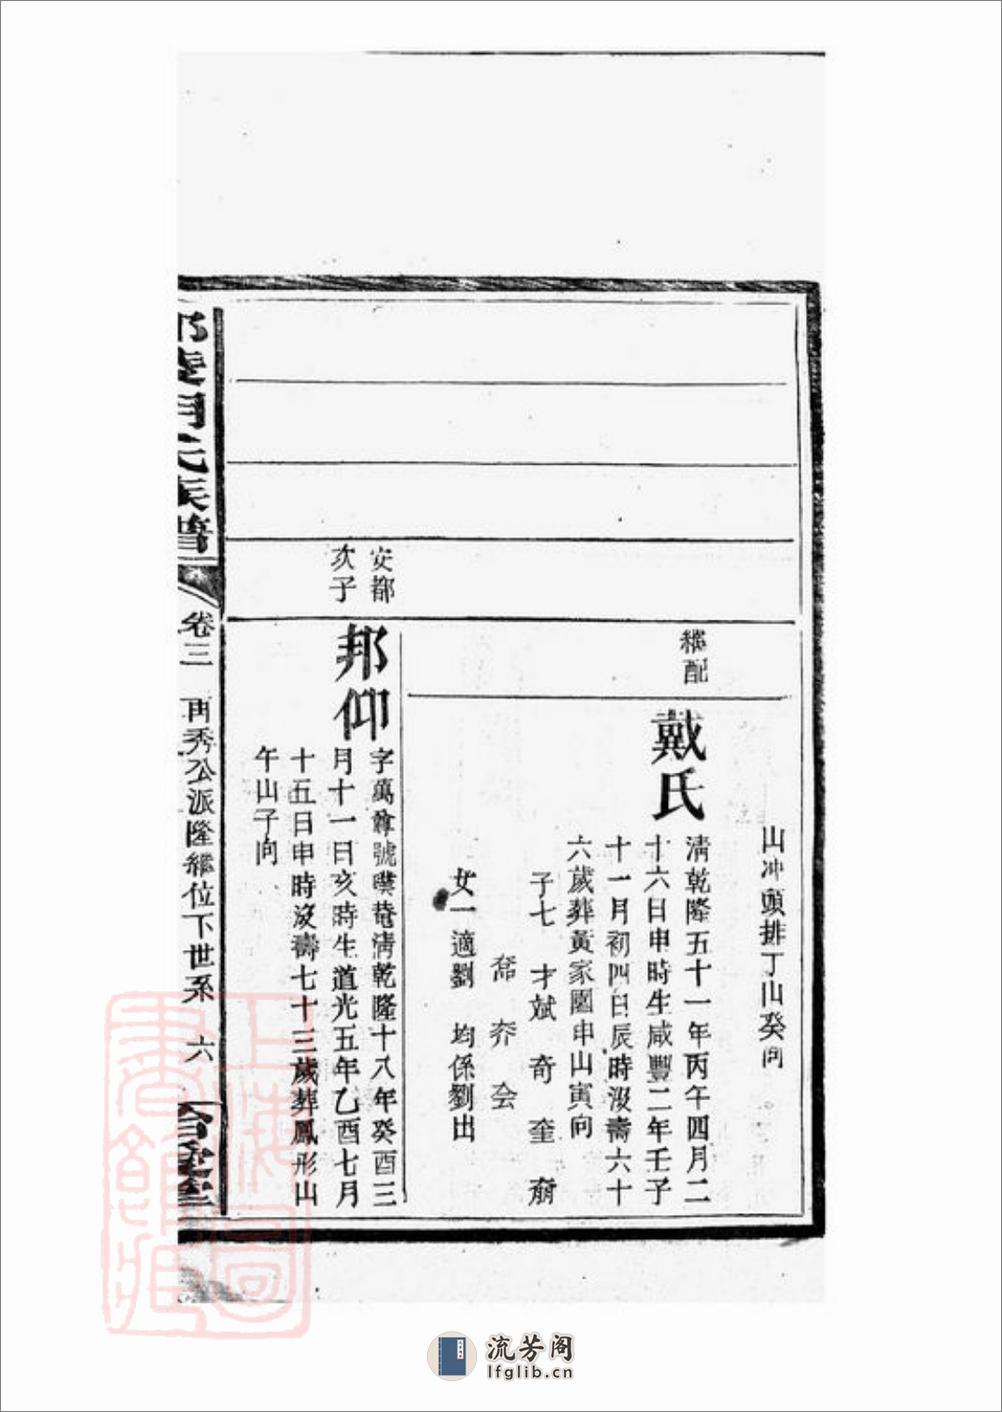 山冲頭排丁山癸向
繼配
戴氏
清乾隆五十一年丙午四月二
十六日申時生咸豐二年壬子
十一月初四日辰時沒壽六十
六歲葬黃家園申山寅向
子七 才斌 奇 奎
女一適劉 均係劉出
安都
次子
邦仰
字萬 號 菴清乾隆十八年癸酉三
月十一日亥時生道光五年乙酉七月
十五日申時沒壽七十三歲葬鳳形山
午山子向
氏族譜
卷三
再秀公派隆繼位下世系
六
上海圖書館藏
流芳阁
lfglib.cn